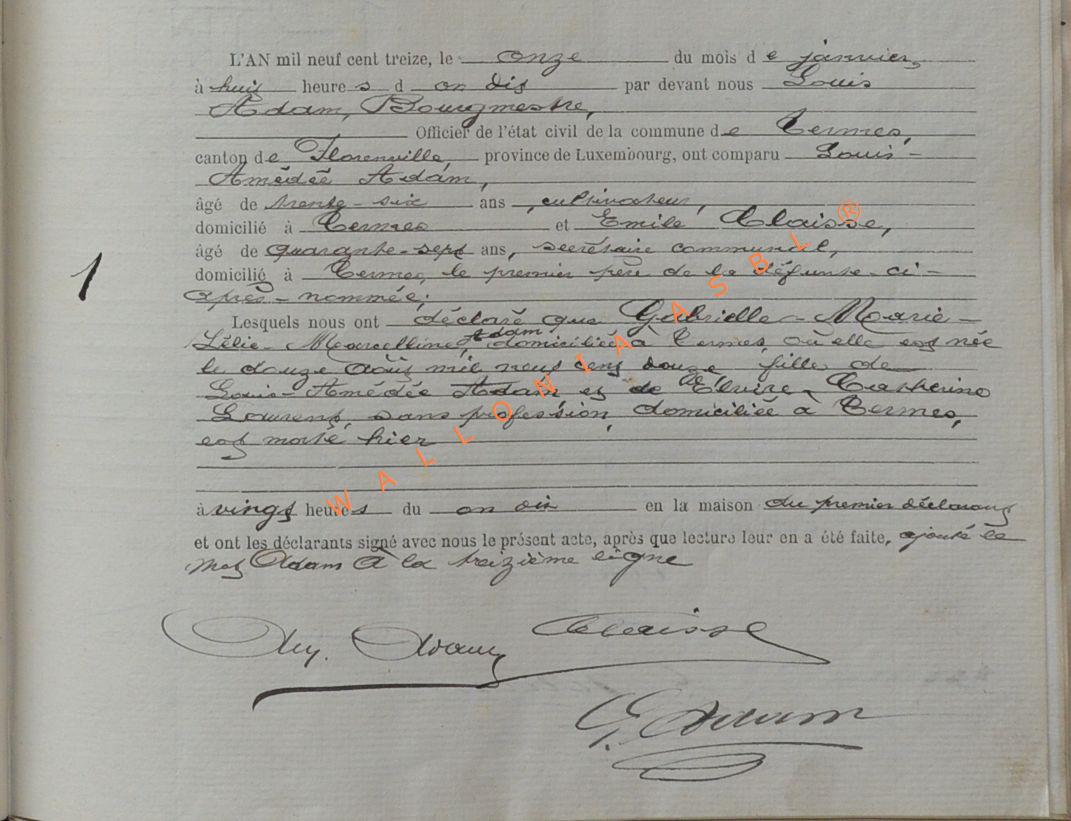 L'AN mil neuf cent treize, le onze du mois de janvier,
à huit heures d on dix par devant nous Louis
Adam, Bourgmestre,
Officier de l'état civil de la commune de Termes,
canton de Florenville, province de Luxembourg, ont comparu Louis-
Amédée Adam,
âgé de trente-six ans, cultivateur,
domicilié à Termes et Emile Claisse,
âgé de quarante-sept ans, secrétaire communal,
domicilié à Termes, le premier père de la défunte ci-
1
après-nommée;
Lesquels nous ont déclaré que Gabrielle-Marie-
Lélie-Marcelline Adam, domiciliée à Termes, où elle est née
le douze août mil neuf cent douze fille de
Louis-Amédée Adam et de Catherine
Laurent, sans profession, domiciliée à Termes,
est morte hier
à vingt heures du on dix en la maison du premier déclarant
et ont les déclarants signé avec nous le présent acte, après que lecture leur en a été faite, ajouté le
mot Adam à la treizième ligne
Adam Claisse
L. Adam
WALLONIA ASBL ®